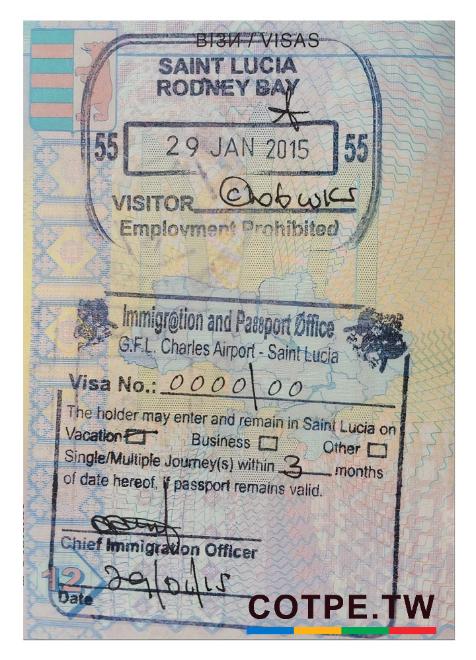 ВІЗИ / VISAS
SAINT LUCIA
RODNEY BAY
55 29 JAN 2015 55
VISITOR
Employment Prohibited
Immigration and Passport Office
G.F.L. Charles Airport - Saint Lucia
Visa No.: 0000/00
The holder may enter and remain in Saint Lucia on
Vacation Business Other
Single/Multiple Journey(s) within 3 months
of date hereof, if passport remains valid.
Chief Immigration Officer
12
Date
COTPE.TW